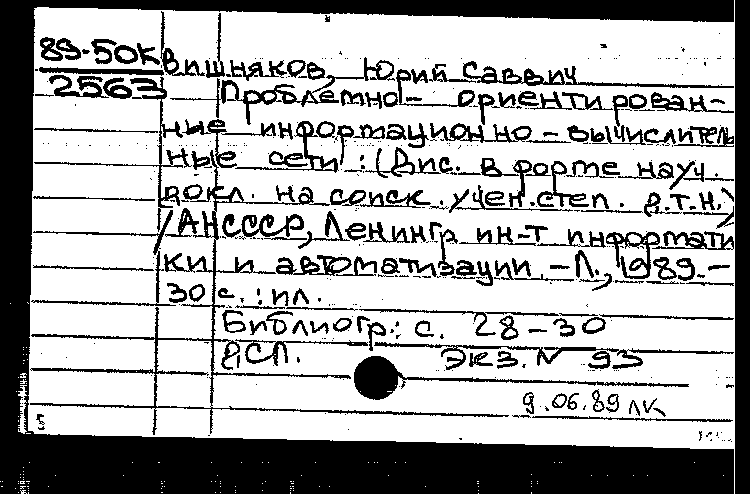 89-50К
2563
Вишняков, Юрий Саввич
Проблемно- ориентирован-
ные информационно-вычислитель
ные сети : (Дис. в форме науч.
докл. на соиск. учен. степ. д.т.н.)
/АНСССР, Ленингр. ин-т информати
ки и автоматизации. -Л., 1989.-
30 с. : ил.
Библиогр.: с. 28-30
ДСП. Экз. N 93
9.06.89 ЛК
5